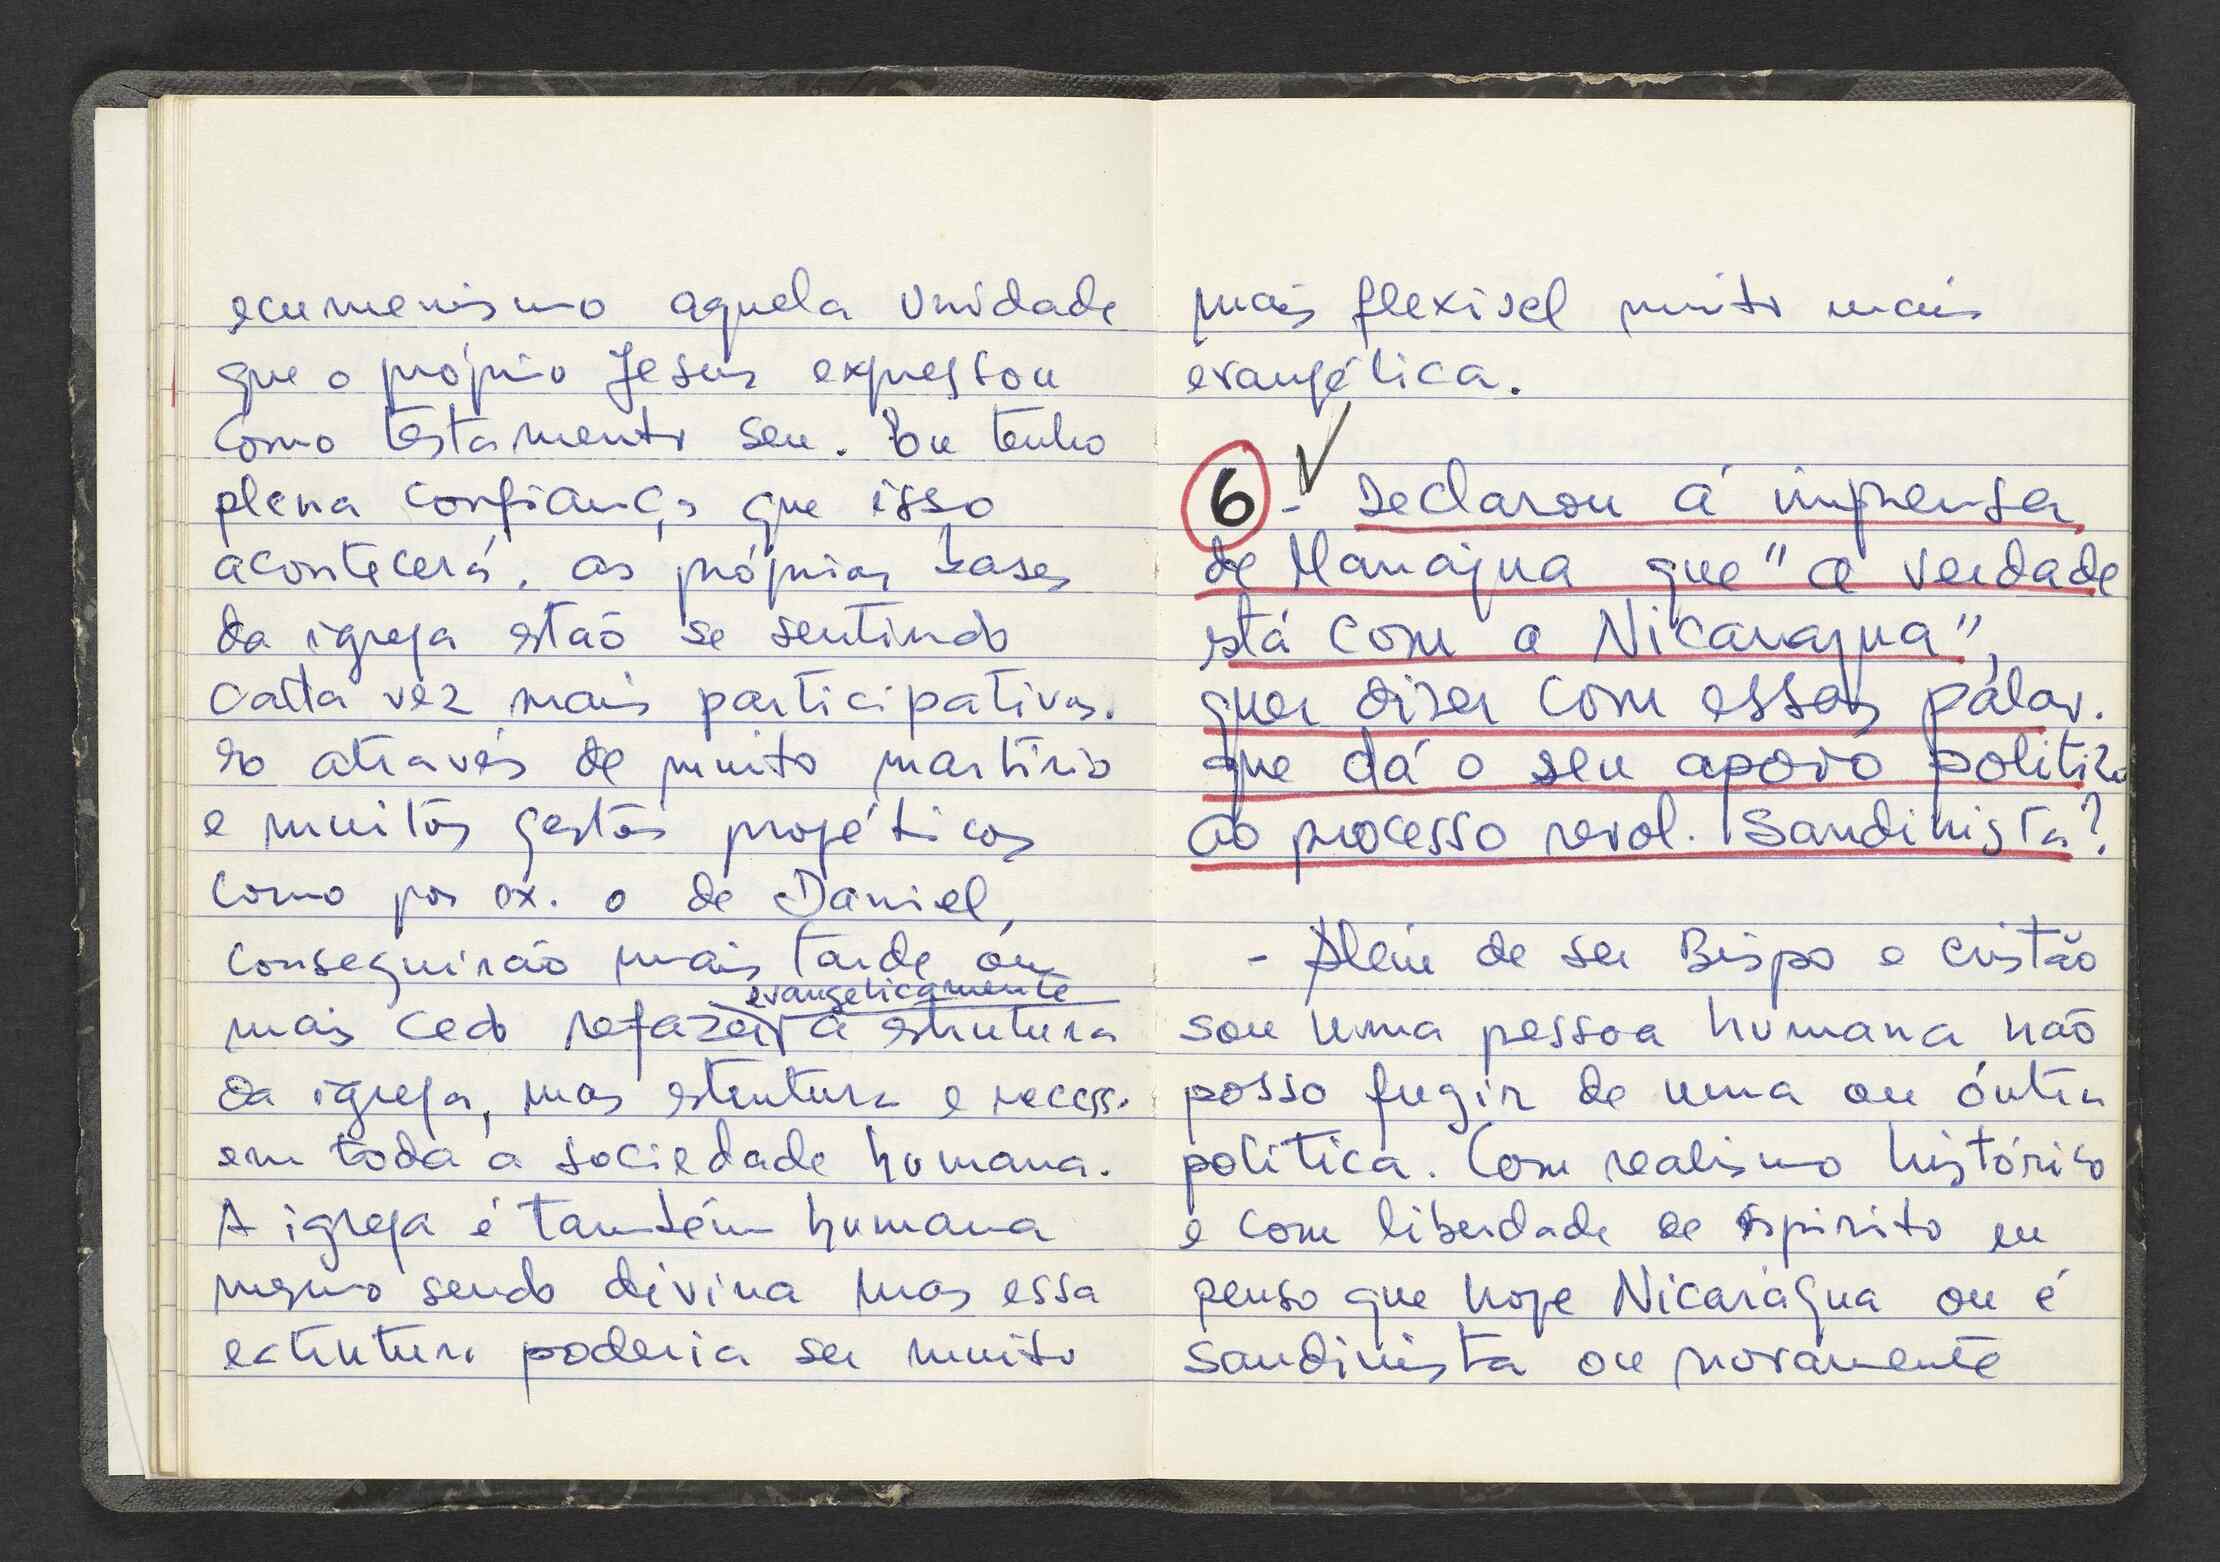 ecumenismo aquela unidade
que o próprio Jesus expressou
como testamento seu. Eu tenho
plena confiança que isso
acontecerá, as próprias bases
da igreja estaõ se sentindo
cada vez mais participativas.
So através de muito martírio
e muitos gestos proféticos
como por ex. o de Daniel,
conseguirão mais tarde ou
evangelicamente
mais cedo refazer a estrutura
da igreja, mas estrutura e necess.
em toda a sociedade humana.
A igreja é também humana
mesmo sendo divina mas essa
estrutura poderia ser muito
mais flexivel muito mais
evangélica.
6 - Declarou á imprensa
de Managua que "a verdade
está com a Nicaragua",
quer dizer com essas palav.
que dá o seu apoio politico
ao processo revol. Sandinista?
- Além de ser Bispo e cristão
sou uma pessoa humana naõ
posso fugir de uma ou óutra
política. Com realismo histórico
e com liberdade de espirito eu
penso que hoje Nicarágua ou é
sandinista ou novamente